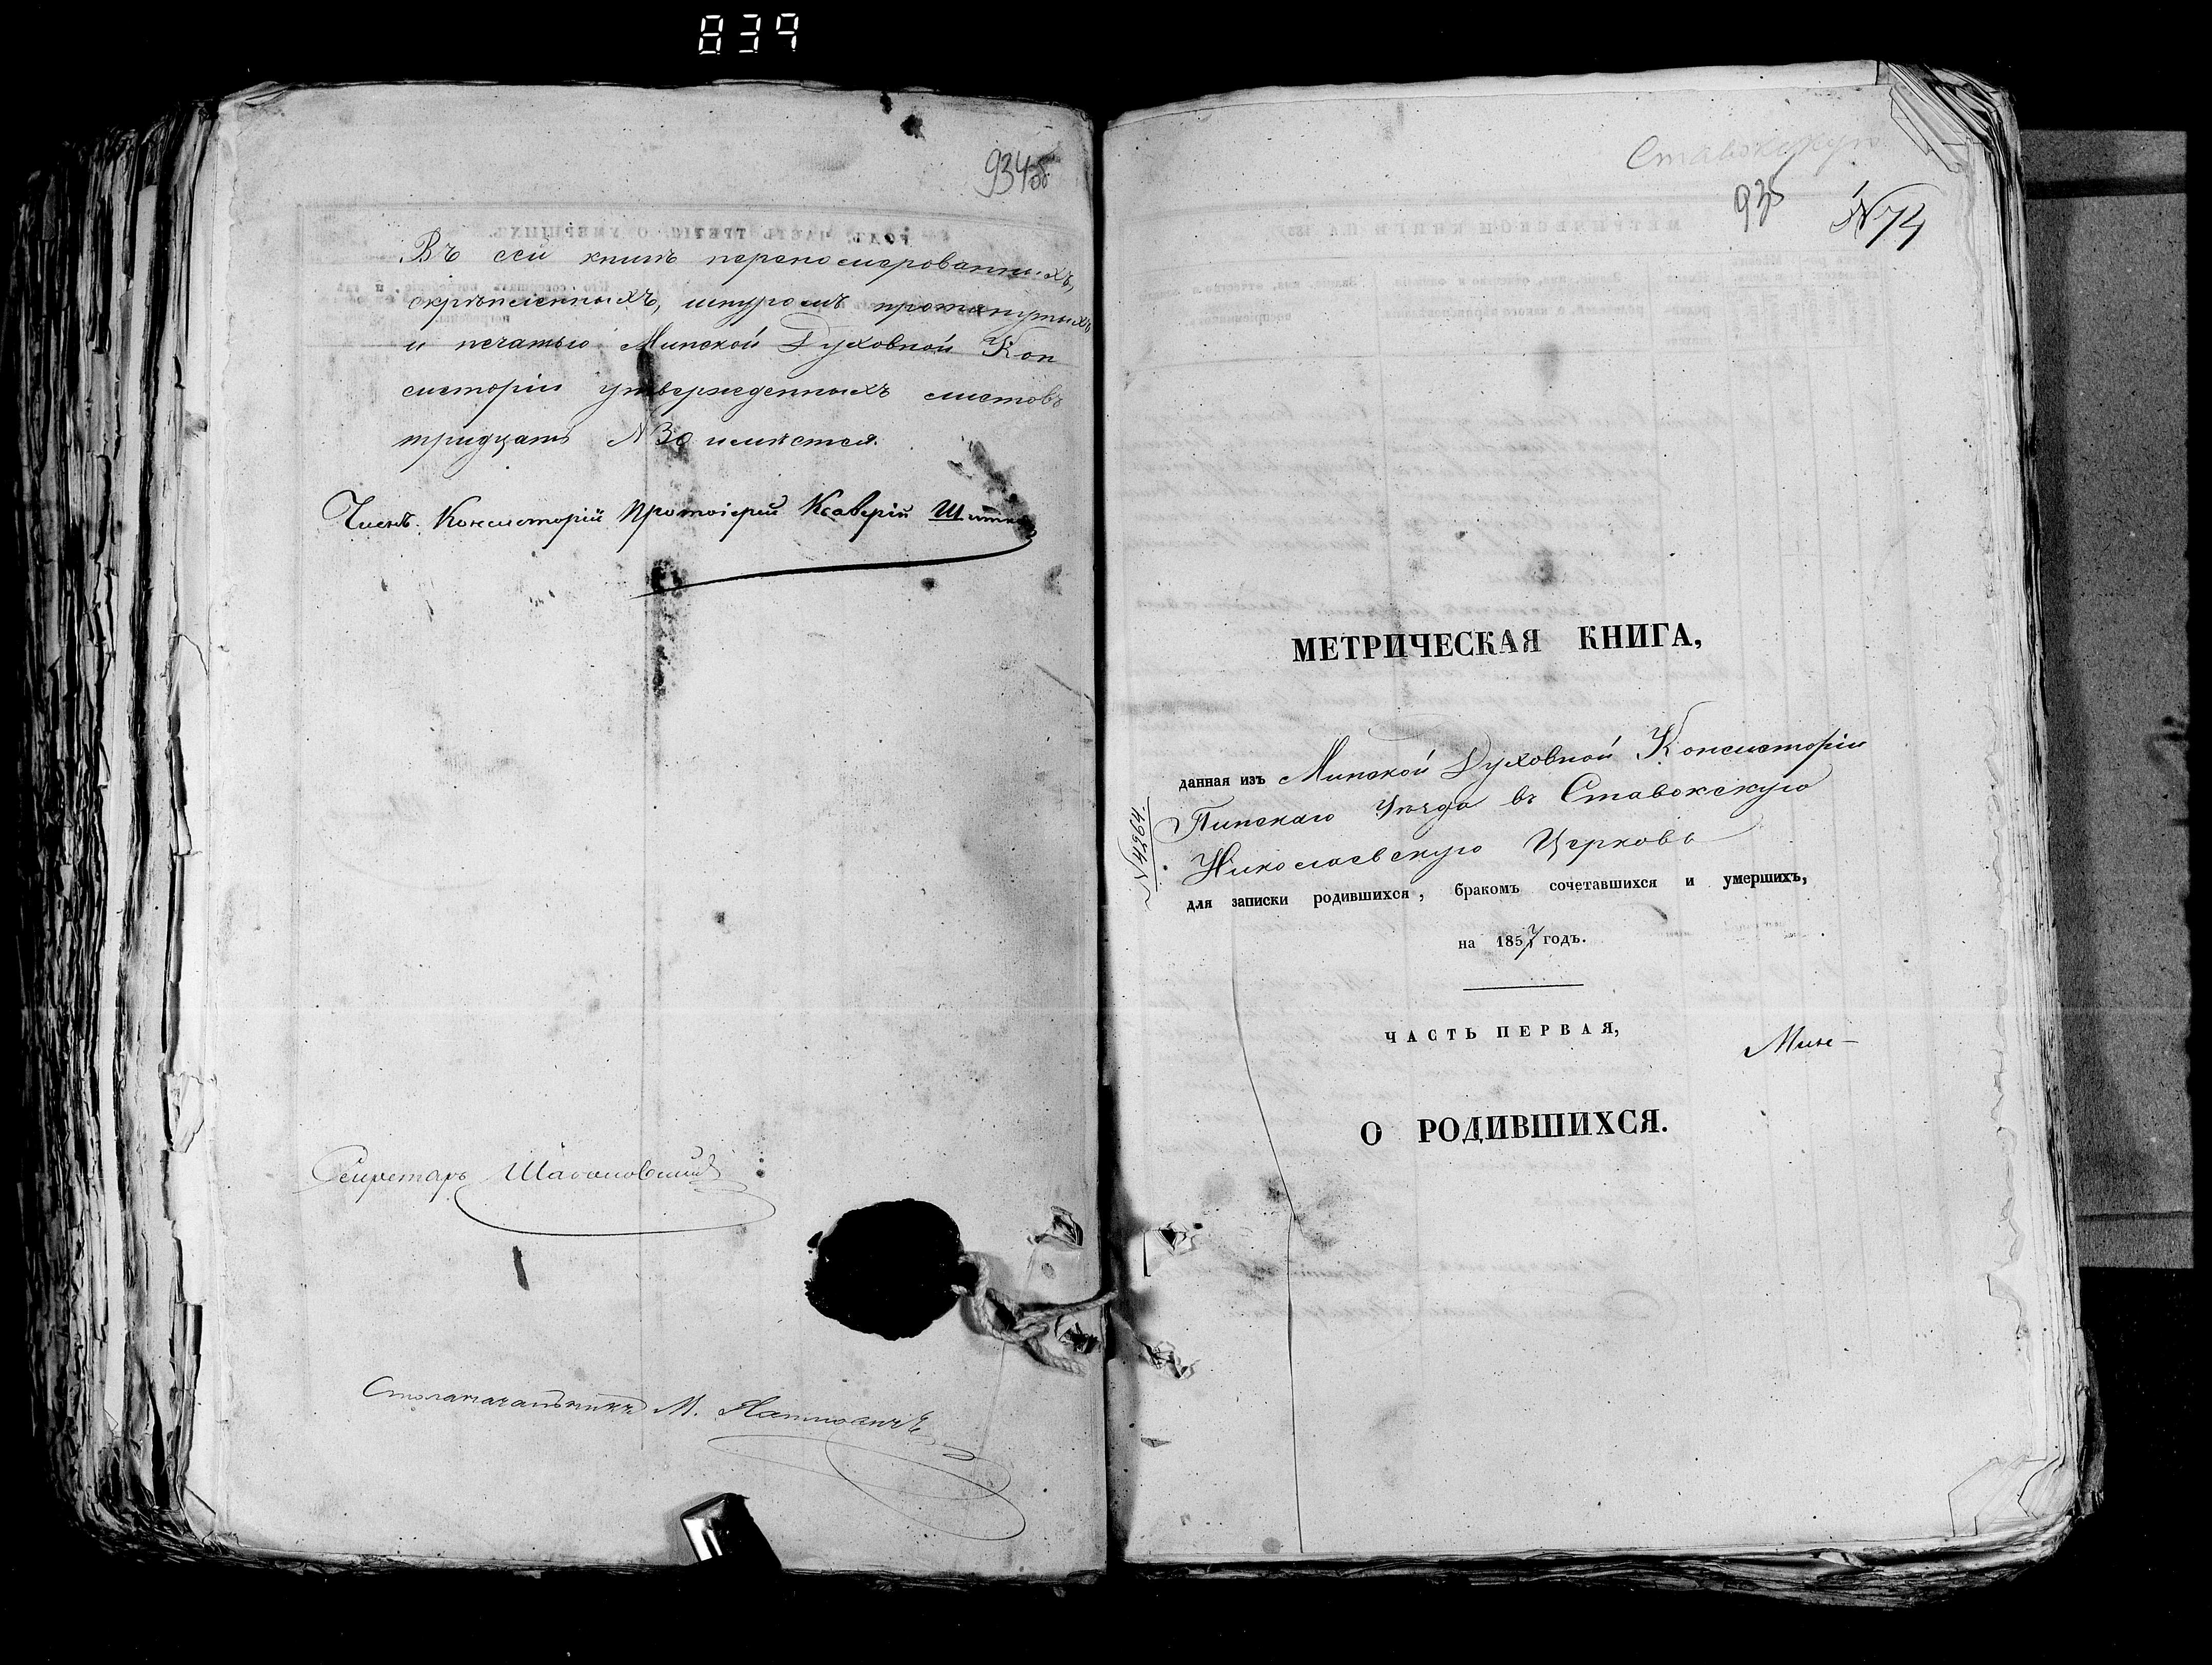 839
934об
Въ сей книгѣ перенумерованныхъ,
скрѣпленныхъ, шнуромъ протянутыхъ
и печатью Минской Духовной Кон
систоріи утвержденныхъ листовъ
тридцать №30 имѣется.
Членъ Консисторіи Протоіерей Ксаверій
Секретарь
Столоначальникъ М.
Ставокскую
935
№74
МЕТРИЧЕСКАЯ КНИГА,
данная изъ Минской Духовной Консисторіи
Пинскаго Уѣзда въ Ставокскую
Николаевскую Церковь
№4264.
для записки родившихся, бракомъ сочетавшихся и умершихъ,
на 1857 годъ.
ЧАСТЬ ПЕРВАЯ,
Мин-
О РОДИВШИХСЯ.